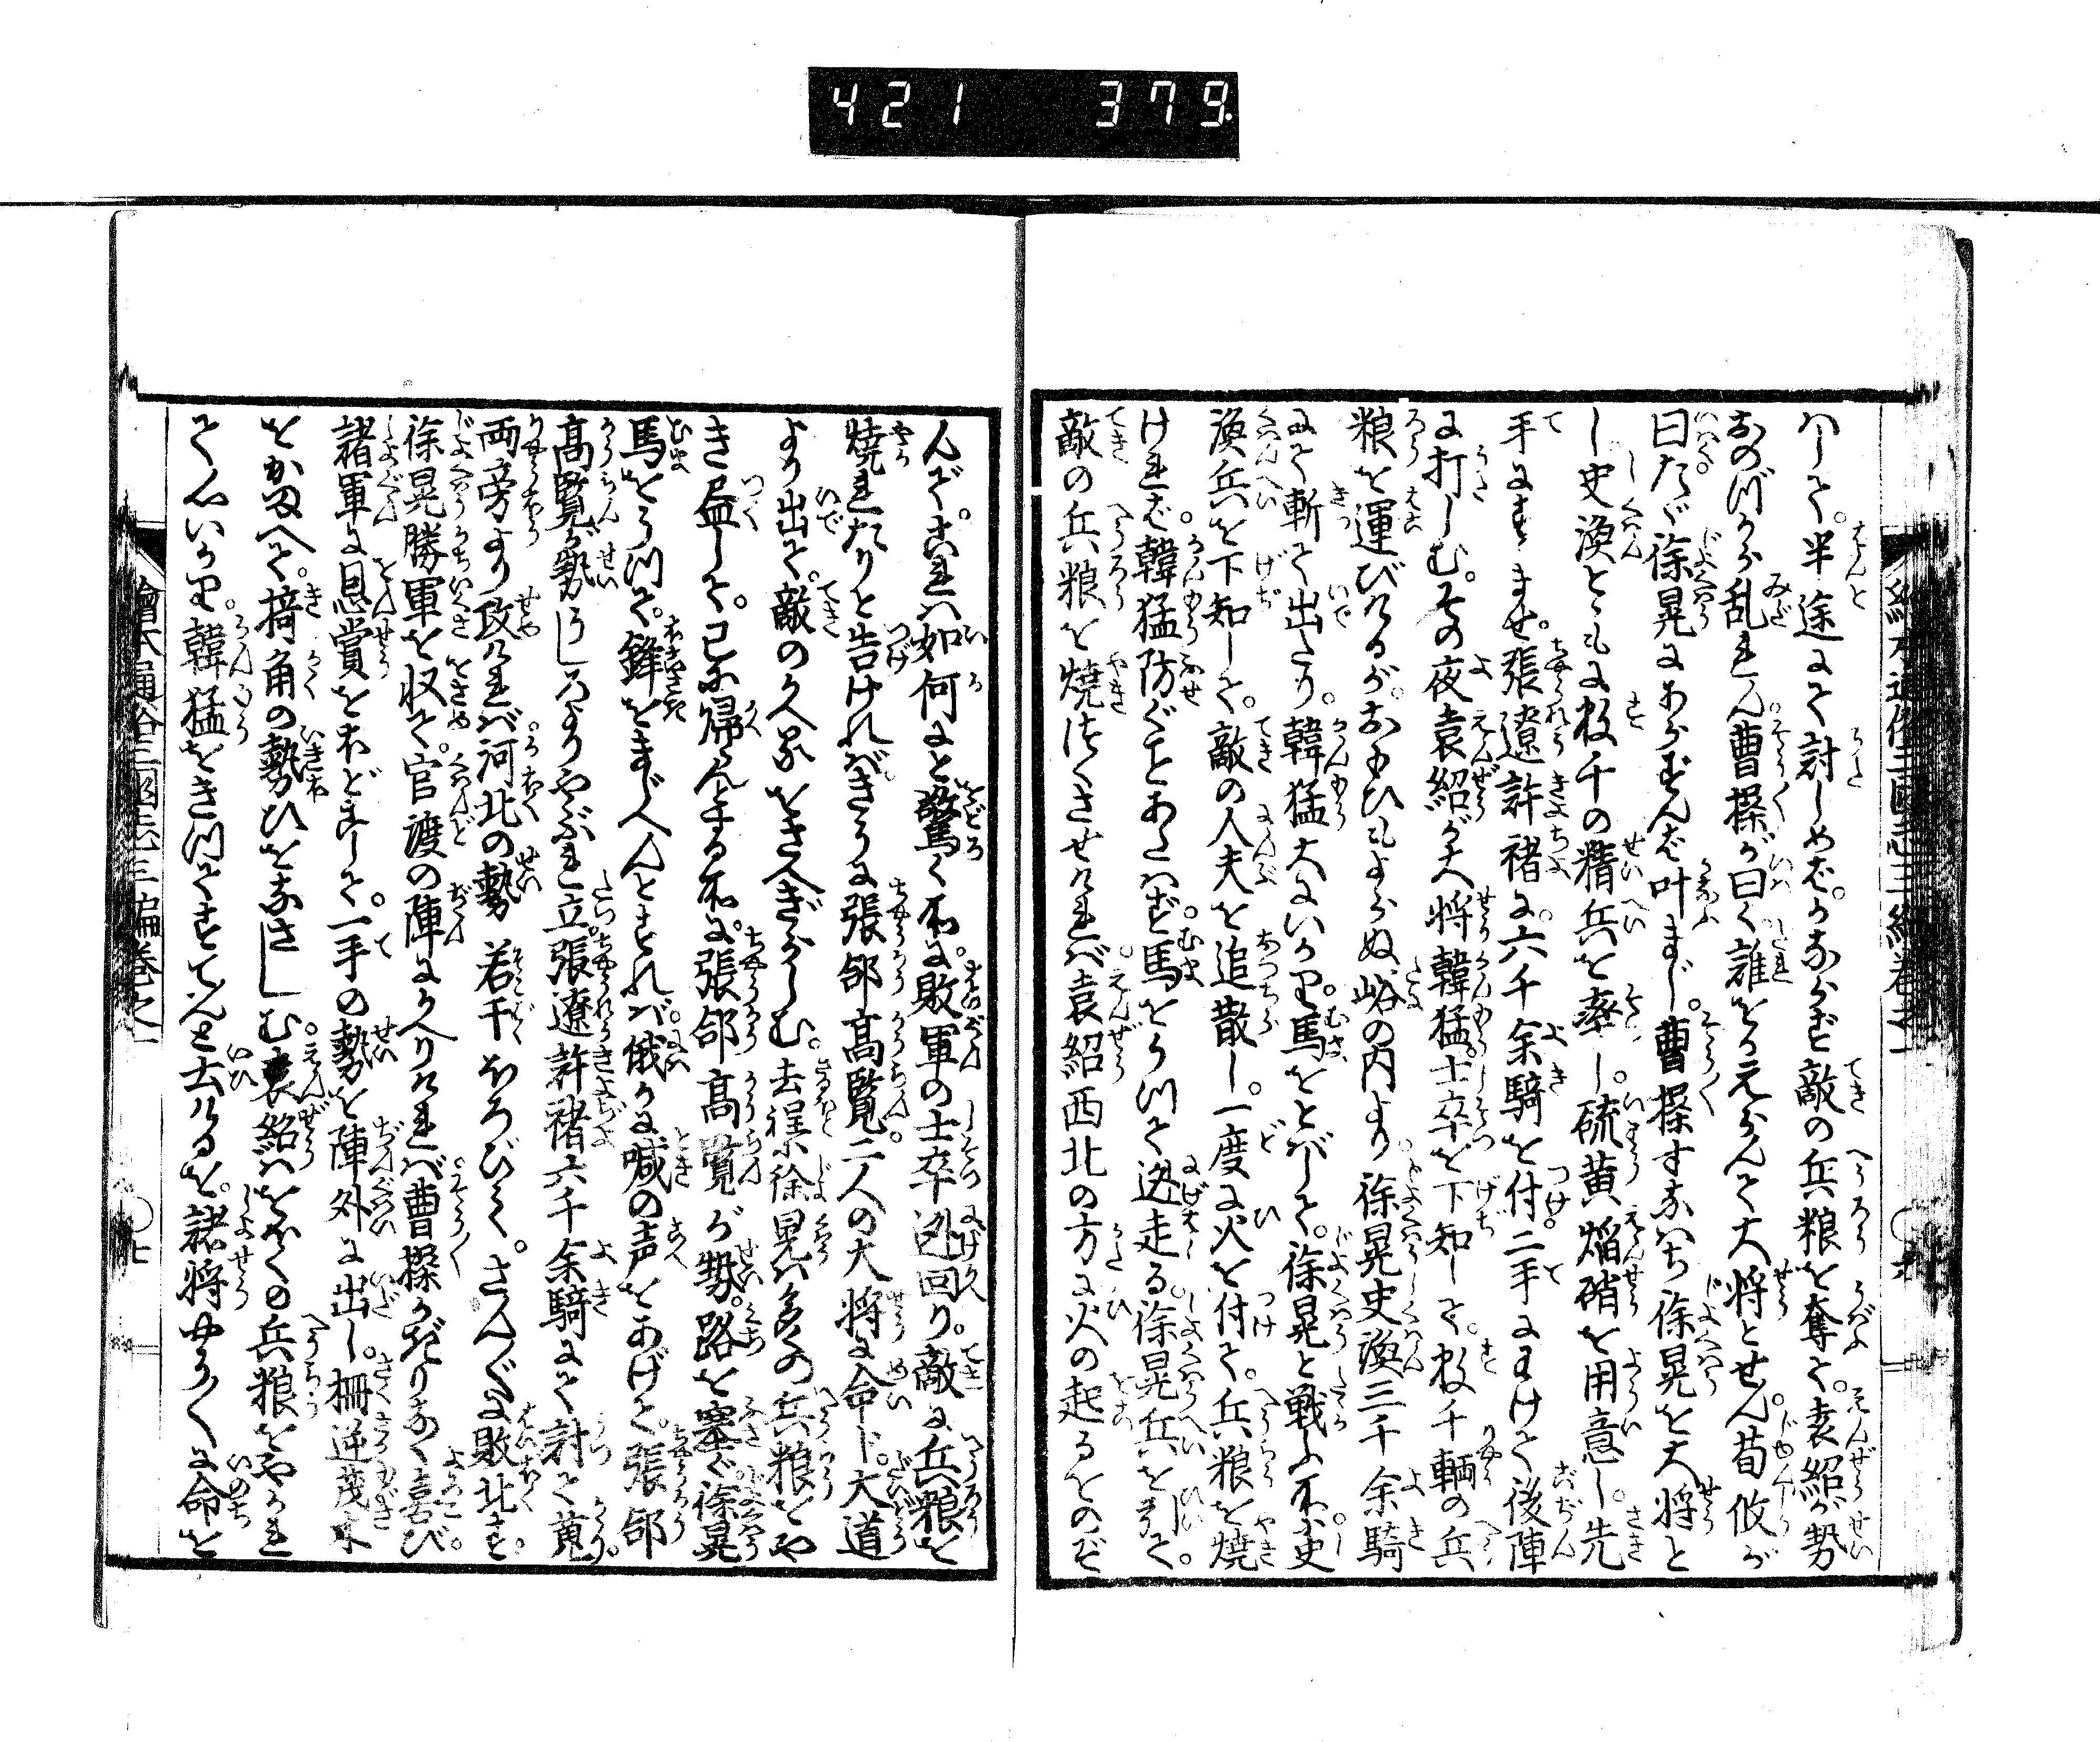 421 379.
繪本通俗三國志三編卷之一
ハして。半途にて討しめば。かならず敵の兵粮を奪て。袁紹が勢
おのづから乱れん曹操が曰く誰をかえらんで大将とせん。荀攸が
曰たゞ徐晃にあらずんば叶まじ。曹操すなはち徐晃を大将と
し。史渙とゝもに数千の精兵を率し。硫黄焔硝を用意し。先
手にすゝませ。張遼許褚に。六千余騎を付。二手にわけて後陣
に打しむ。その夜袁紹が大将韓猛。士卒を下知して。数千輌の兵
粮を運びけるが。おもひもよらぬ峪の内より。徐晃史渙三千余騎
にて斬て出たり。韓猛大にいかり。馬をとばして。徐晃と戦ふ所に史
渙兵を下知して。敵の人夫を追散し。一度に火を付て。兵粮を焼
ければ。韓猛防ぐことあたはず。馬をうつて逃走る。徐晃兵を引て。
敵の兵粮を焼つくさせければ。袁紹西北の方に火の起るをのぞ
んで。これは如何にと驚く所に。敗軍の士卒逃回り。敵に兵粮を
焼れたりと告ければ。きうに張郃高覧二人の大将に命じ。大道
より出て。敵の久らをさへぎらしむ。去程に徐晃は多くの兵粮をや
き尽して。已に帰らんとする所に。張郃高覧が勢。路を塞ぐ。徐晃
馬をうつて。鋒をまじへんとすれば。俄かに喊の声をあげて。張郃
高覧が勢うしろよりやぶれ立。張遼許褚六千余騎にて討て蒐り。
両旁より攻ければ。河北の勢若干ほろびて。さん〴〵に敗北す。
徐晃勝軍を収て。官渡の陣にかへりければ。曹操かぎりなく喜び。
諸軍に恩賞をほどこして。一手の勢を陣外に出し。柵逆茂木
をかまへて。掎角の勢ひをなさしむ。袁紹はをほくの兵粮をやかれ
て心いかり。韓猛をきつてすてんと云けるを。諸将やう〳〵に命を
繪本通俗三國志三編卷之一
○七